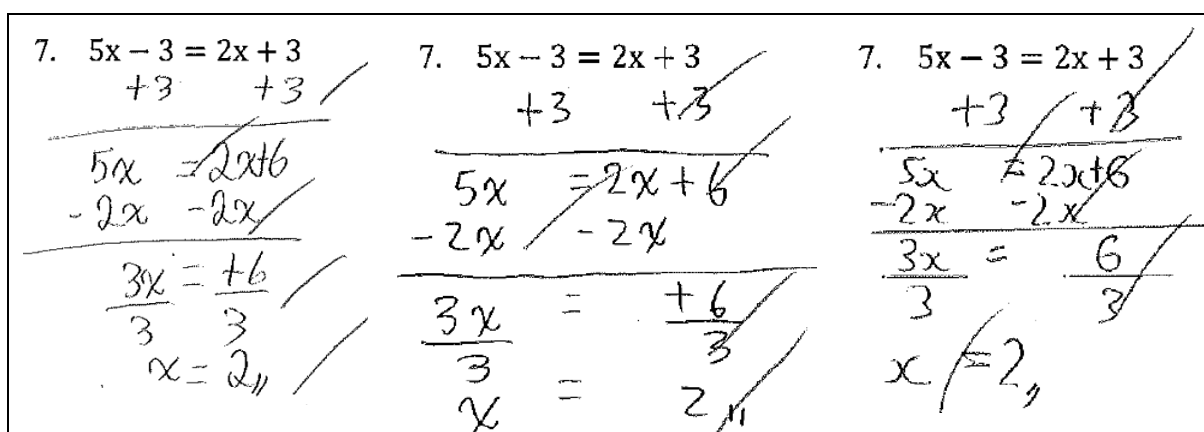 7. 5x − 3 = 2x + 3
+3 +3
5x = 2x+6
-2x -2x
3x = +6
3 3
x = 2,,
7. 5x − 3 = 2x + 3
+3 +3
5x = 2x + 6
-2x -2x
3x = +6
3 3
x = 2,,
7. 5x − 3 = 2x + 3
+3 +3
5x = 2x+6
-2x -2x
3x = 6
3 3
x = 2,,